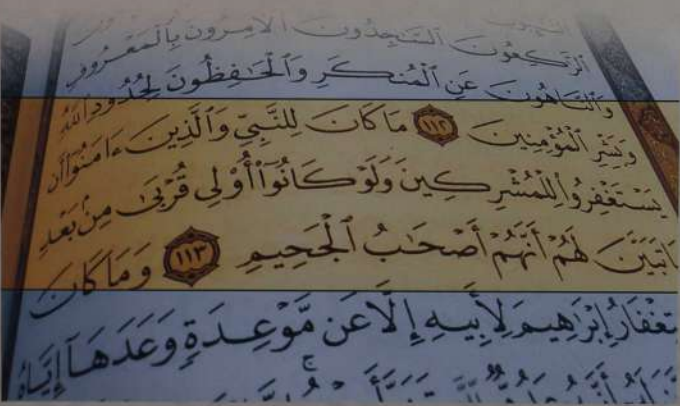 ٱلرَّٰكِعُونَ ٱلسَّٰجِدُونَ ٱلْـَٔامِرُونَ بِٱلْمَعْرُوفِ
وَٱلنَّاهُونَ عَنِ ٱلْمُنكَرِ وَٱلْحَٰفِظُونَ لِحُدُودِ ٱللَّهِ
وَبَشِّرِ ٱلْمُؤْمِنِينَ ١١٢ مَا كَانَ لِلنَّبِىِّ وَٱلَّذِينَ ءَامَنُوٓا۟ أَن
يَسْتَغْفِرُوا۟ لِلْمُشْرِكِينَ وَلَوْ كَانُوٓا۟ أُو۟لِى قُرْبَىٰ مِنۢ بَعْدِ
مَا تَبَيَّنَ لَهُمْ أَنَّهُمْ أَصْحَٰبُ ٱلْجَحِيمِ ١١٣ وَمَا كَانَ
تِغْفَارُ إِبْرَٰهِيمَ لِأَبِيهِ إِلَّا عَن مَّوْعِدَةٍ وَعَدَهَآ إِيَّاهُ